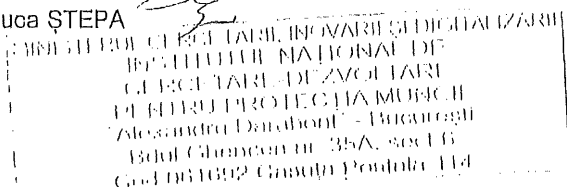 uca ȘTEPA
MINISTERUL CERCETĂRII, INOVĂRII ȘI DIGITALIZĂRII
INSTITUTUL NAȚIONAL DE
CERCETARE-DEZVOLTARE
PENTRU PROTECȚIA MUNCII
"Alexandru Darabont" - București
Bdul Ghencea nr. 35A, sect 6
Cod 061692 Căsuța Poștală 114